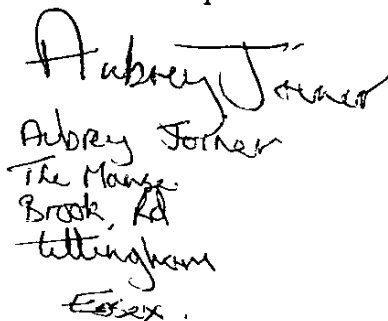 Aubrey Joiner
Aubrey Joiner
The Manse
Brook Rd
Tillingham
Essex.